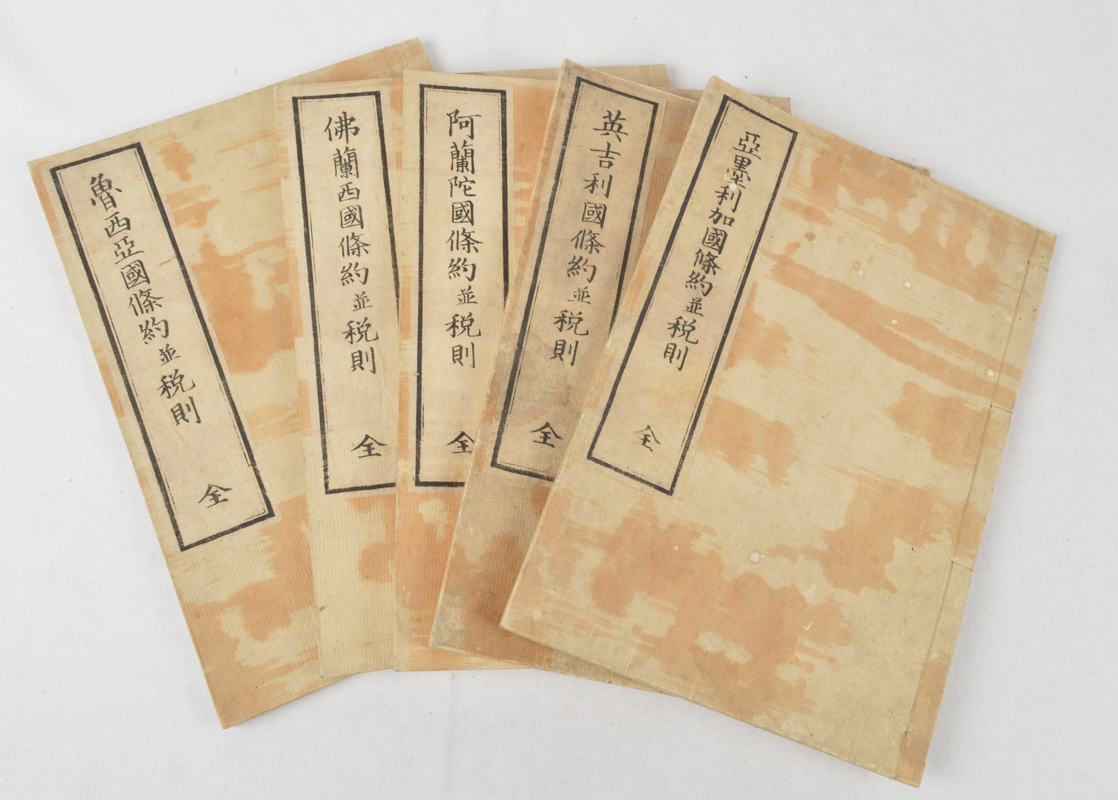 亞墨利加國條約並税則 全
英吉利國條約並税則 全
阿蘭陀國條約並税則 全
佛蘭西國條約並税則 全
魯西亞國條約並税則 全